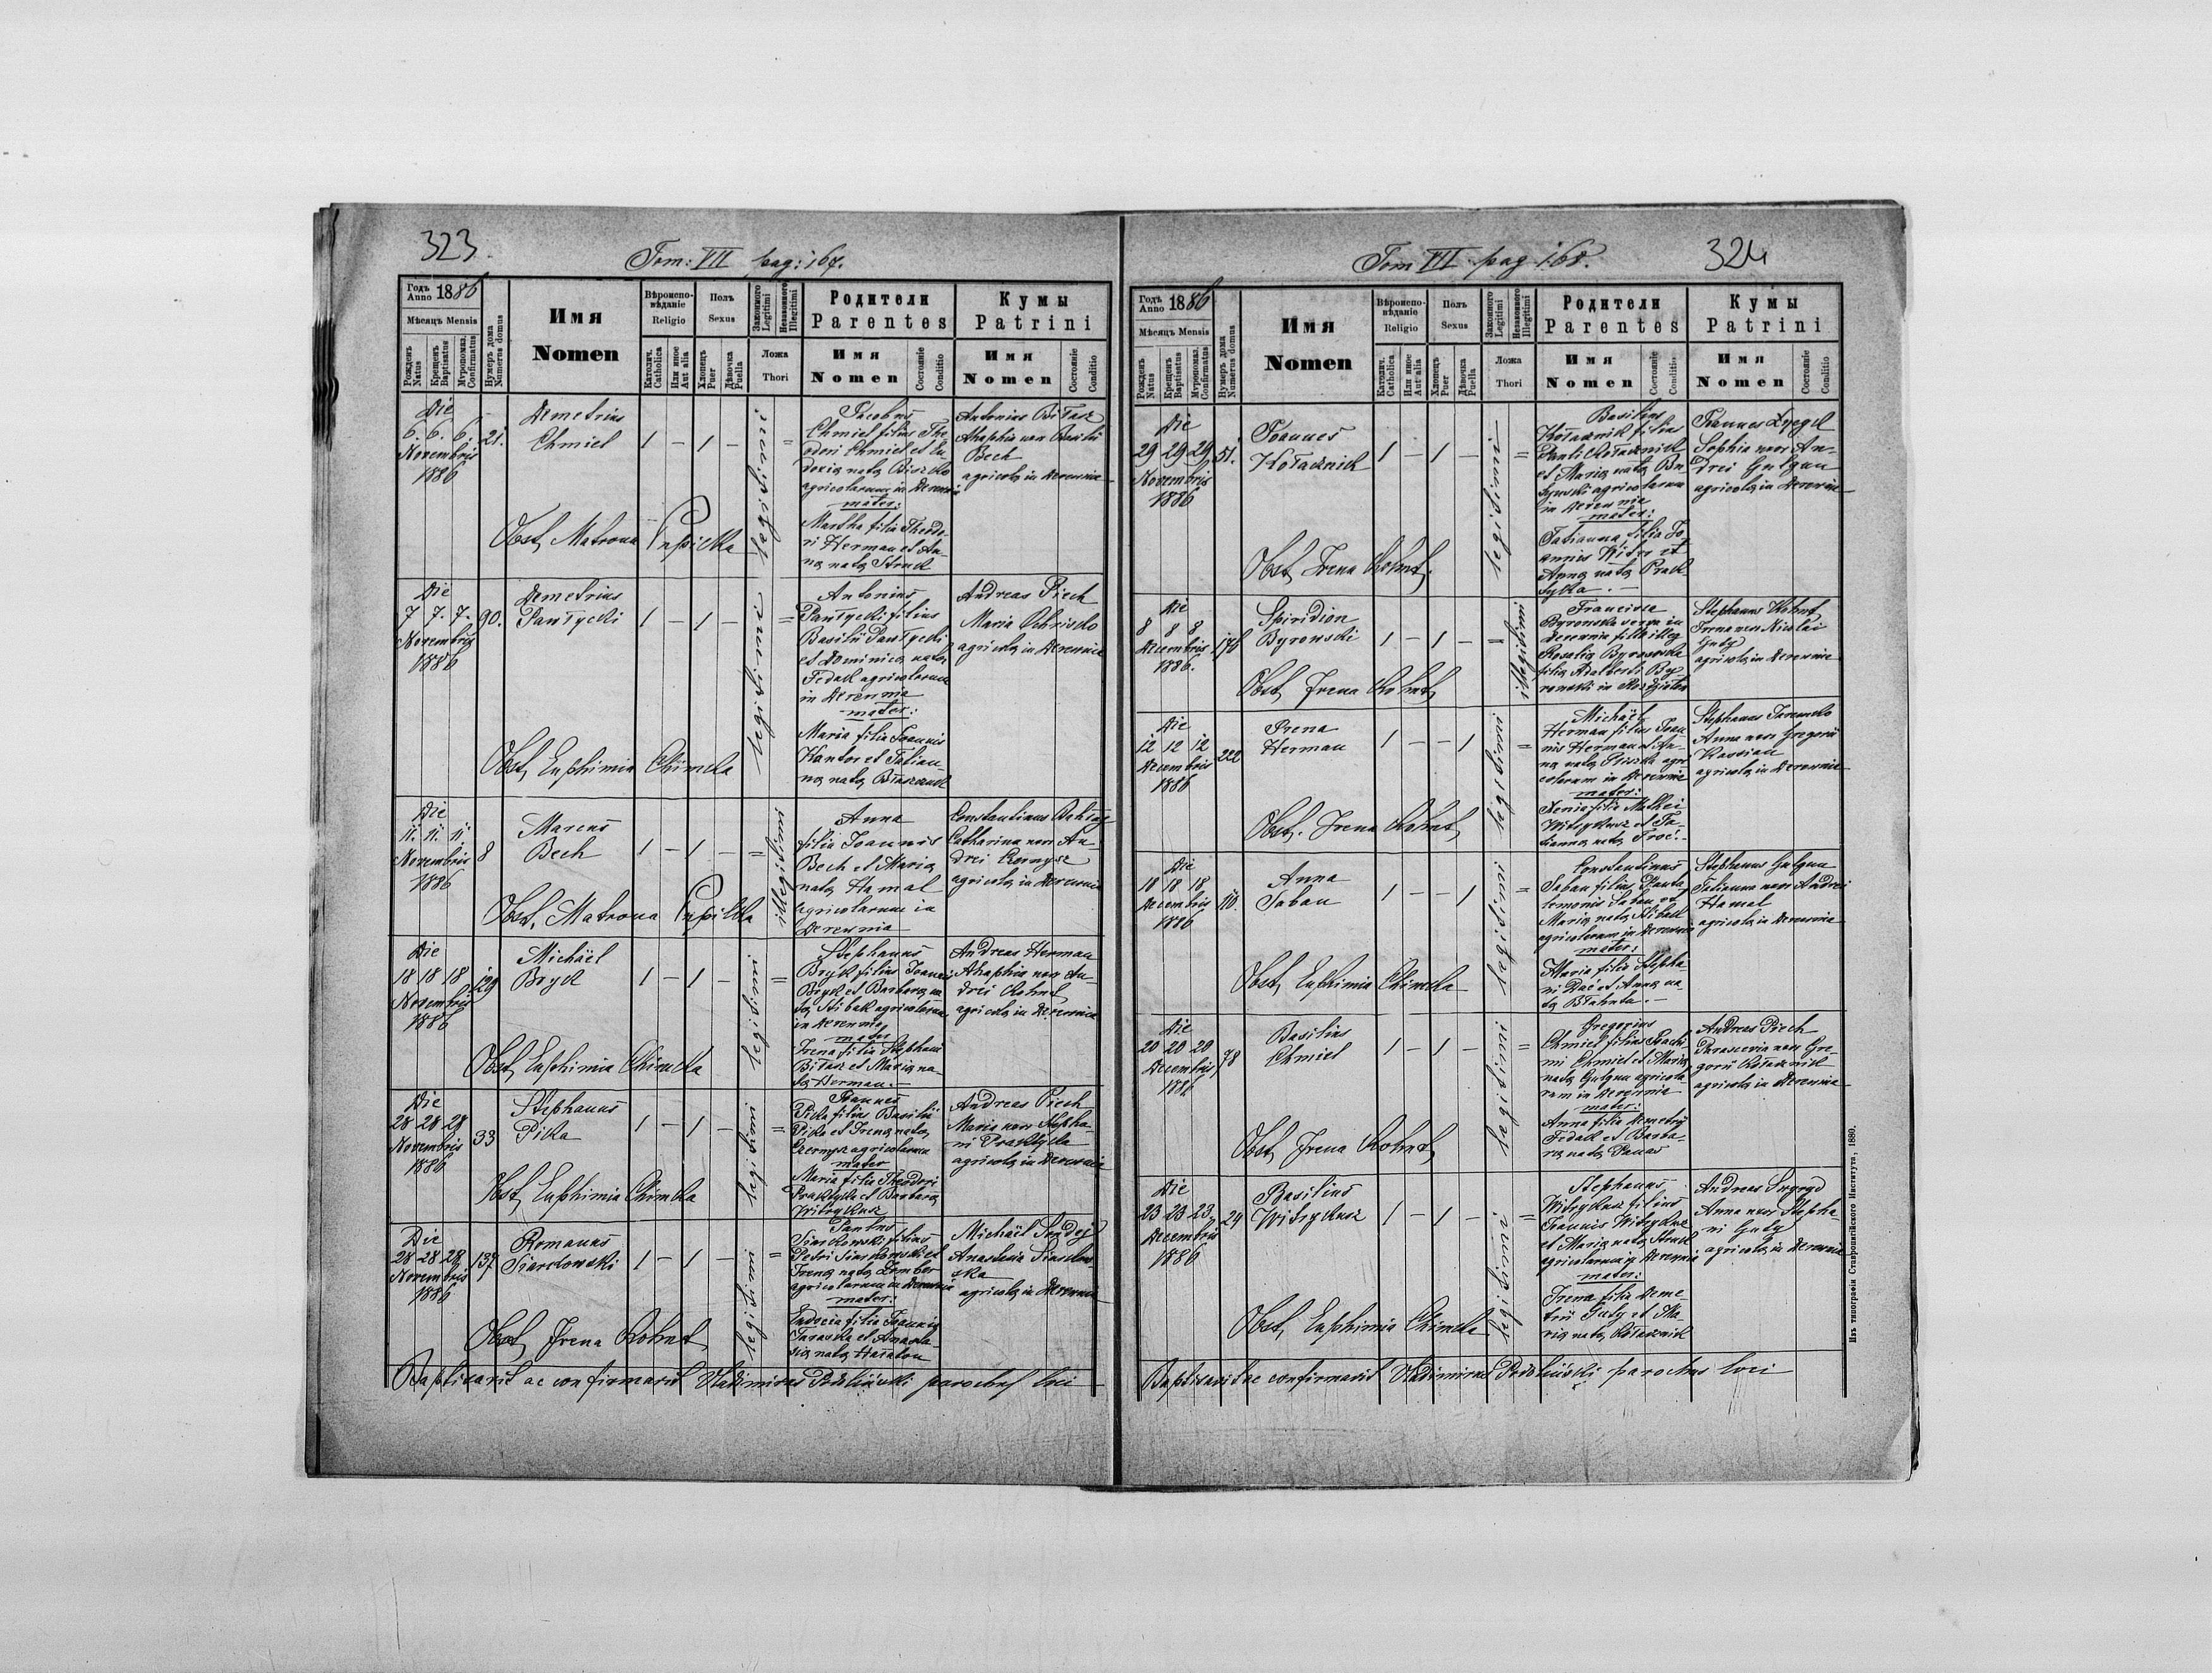 323.
Tom: VII pag: 167.
Годъ Anno 1886
Мѣсяцъ Mensis
Рожденъ Natus
Крещенъ Baptisatus
Мѵропомаз. Confirmatus
Нумеръ дома Numerus domus
Имя
Nomen
Вѣроиспо-
вѣданіе
Religio
Католич. Catholica
Или иное Aut alia
Полъ
Sexus
Хлопецъ Puer
Дѣвочка Puella
Законного Legitimi
Незаконного Illegitimi
Ложа
Thori
Родители
Parentes
Имя
Nomen
Состояніе Conditio
Кумы
Patrini
Имя
Nomen
Состояніе Conditio
Die
6. 6. 6.
Novembris
1886
21.
Demetrius
Chmiel
1 – 1 –
legitimi
=
Jacobus
Chmiel filius The
odori Chmiel et Eu
doxia nata
agricolarum in Derewnia
mater:
Martha filia Theodo-
ri Herman et An-
na nata Struk
Antonius Biłasz
Ahaphia uxor Basilii
Bech
agricolae in Derewnia
Obst. Matrona
Die
7 7. 7.
Novembris
1886
90.
Demetrius
Pałtycki
1 – 1 –
legitimi
=
Antonius
Pałtycki filius
Basilii Pałtycki
et Dominica nata
Fedak agricolarum
in Derewnia
mater:
Maria filia Joannis
Kantor et Tatian-
na nata
Andreas Piech
Maria
agricolae in Derewnia
Obst. Euphimia Chimka
Die
11. 11. 11.
Novembris
1886
8
Marcus
Bech
1 – 1 –
=
illegitimi
Anna
filia Joannis
Bech et Maria
nata Hamal
agricolarum in
Derewnia
Constantinus
Catharina uxor An
drei Czernysz
agricolae in Derewnia
Obst. Matrona
Die
18 18 18
Novembris
1886
129
Michaël
Bryk
1 – 1 –
legitimi
=
Stephanus
Bryk filius Joannis
Bryk et Barbara na
ta Stibak agricolarum
in Derewnia
mater
Irena filia Stephani
Biłasz et Maria na-
ta Herman.–
Andreas Herman
Ahaphia uxor An-
drei Kohut
agricolae in Derewnia
Obst. Euphimia Chimka
Die
28 28 28
Novembris
1886
33
Stephanus
Pika
1 – 1 –
legitimi
=
Joannes
Pika filius Basilii
Pika et Irena nata
Czernysz agricolarum
mater
Maria filia Theodori
Praktyka et Barbara
Witrykusz
Andreas Piech
Maria uxor Stepha-
ni Praktyka
agricolae in Derewnia
Obst. Euphimia Chimka
Die
28 28 28
Novembris
1886
137
Romanus
Siarkowski
1 – 1 –
legitimi
=
Paulus
Siarkowski filius
Petri Siarkowski et
Irena nata
agricolarum in Derewnia
mater:
Eudocia filia Joannis
Taraska et Anasta-
sia nata
Michaël
Anastasia Siarkow
ska
agricolae in Derewnia
Obst. Irena Kohut
Baptisavit ac confirmavit Wladimirus Podliński parochus loci
Tom VII pag 168.
324
Годъ Anno 1886
Мѣсяцъ Mensis
Рожденъ Natus
Крещенъ Baptisatus
Мѵропомаз. Confirmatus
Нумеръ дома Numerus domus
Имя
Nomen
Вѣроиспо-
вѣданіе
Religio
Католич. Catholica
Или иное Aut alia
Полъ
Sexus
Хлопецъ Puer
Дѣвочка Puella
Законного Legitimi
Незаконного Illegitimi
Ложа
Thori
Родители
Parentes
Имя
Nomen
Состояніе Conditio
Кумы
Patrini
Имя
Nomen
Состояніе Conditio
Die
29 29 29
Novembris
1886
51.
Joannes
Kołacznik
1 – 1 –
legitimi
=
Basilius
Kołacznik filius
Pauli Kołacznik
et Maria nata
agricolarum
in Derewnia
mater:
Tatianna filia Jo-
annis et
Anna nata Prak-
tyka.–
Joannes
Sophia uxor An-
drei Gulgan
agricolae in Derewnia
Obst. Irena Kohut.
Die
8 8 8
Decembris
1886.
176
Spiridion
Byrowski
1 – 1 –
=
illegitimi
Francisca
Byrowska serva in
Derewnia filia illeg
Rosalia Byrowska
filia Adalberti By-
rowski in
Stephanus Kohut
Irena uxor Nicolai
Guty
agricolae in Derewnia
Obst. Irena Kohut
Die
12 12 12
Decembris
1886
222
Irena
Herman
1 – – 1
legitimi
=
Michaël
Herman filius Joan-
nis Herman et An-
na nata agri
colarum in Derewnia
mater:
Xenia filia Mathei
Witrykusz et Ta-
tianna nata Proć.–
Stephanus Jaremko
Anna uxor Gregorii
Kassian
agricolae in Derewnia
Obst. Irena Kohut
Die
18 18 18
Decembris
1886
110.
Anna
Saban
1 – – 1
legitimi
=
Constantinus
Saban filius Panta
lemonis Saban et
Maria nata Stibak
agricolarum in Derewnia
mater:
Maria filia Stepha-
ni Dać et Anna na
ta Błahuta.–
Stephanus Gulgan
Tatianna uxor Andrei
Hamal
agricolae in Derewnia
Obst. Euphimia Chimka
Die
20 20 20
Decembris
1886
78
Basilius
Chmiel
1 – 1 –
legitimi
=
Gregorius
Chmiel filius Joachi-
mi Chmiel et Maria
nata Gulgan agricola
rum in Derewnia
mater:
Anna filia Demetrij
Fedak et Barba-
ra nata Panas
Andreas Piech
Parascevia uxor Gre-
gorii Kołacznik
agricolae in Derewnia
Obst. Irena Kohut
Die
23 23 23.
Decembris
1886
24
Basilius
Witrykusz
1 – 1 –
legitimi
=
Stephanus
Witrykusz filius
Joannis Witrykusz
et Maria nata Struk
agricolarum in Derewnia
mater:
Irena filia Deme-
trii Guty et Ma-
ria nata Kołacznik
Andreas
Anna uxor Stepha-
ni Guty
agricolae in Derewnia
Obst. Euphimia Chimka
Baptisavit ac confirmavit Wladimirus Podliński parochus loci
Изъ типографіи Ставропигійского Института, 1880.